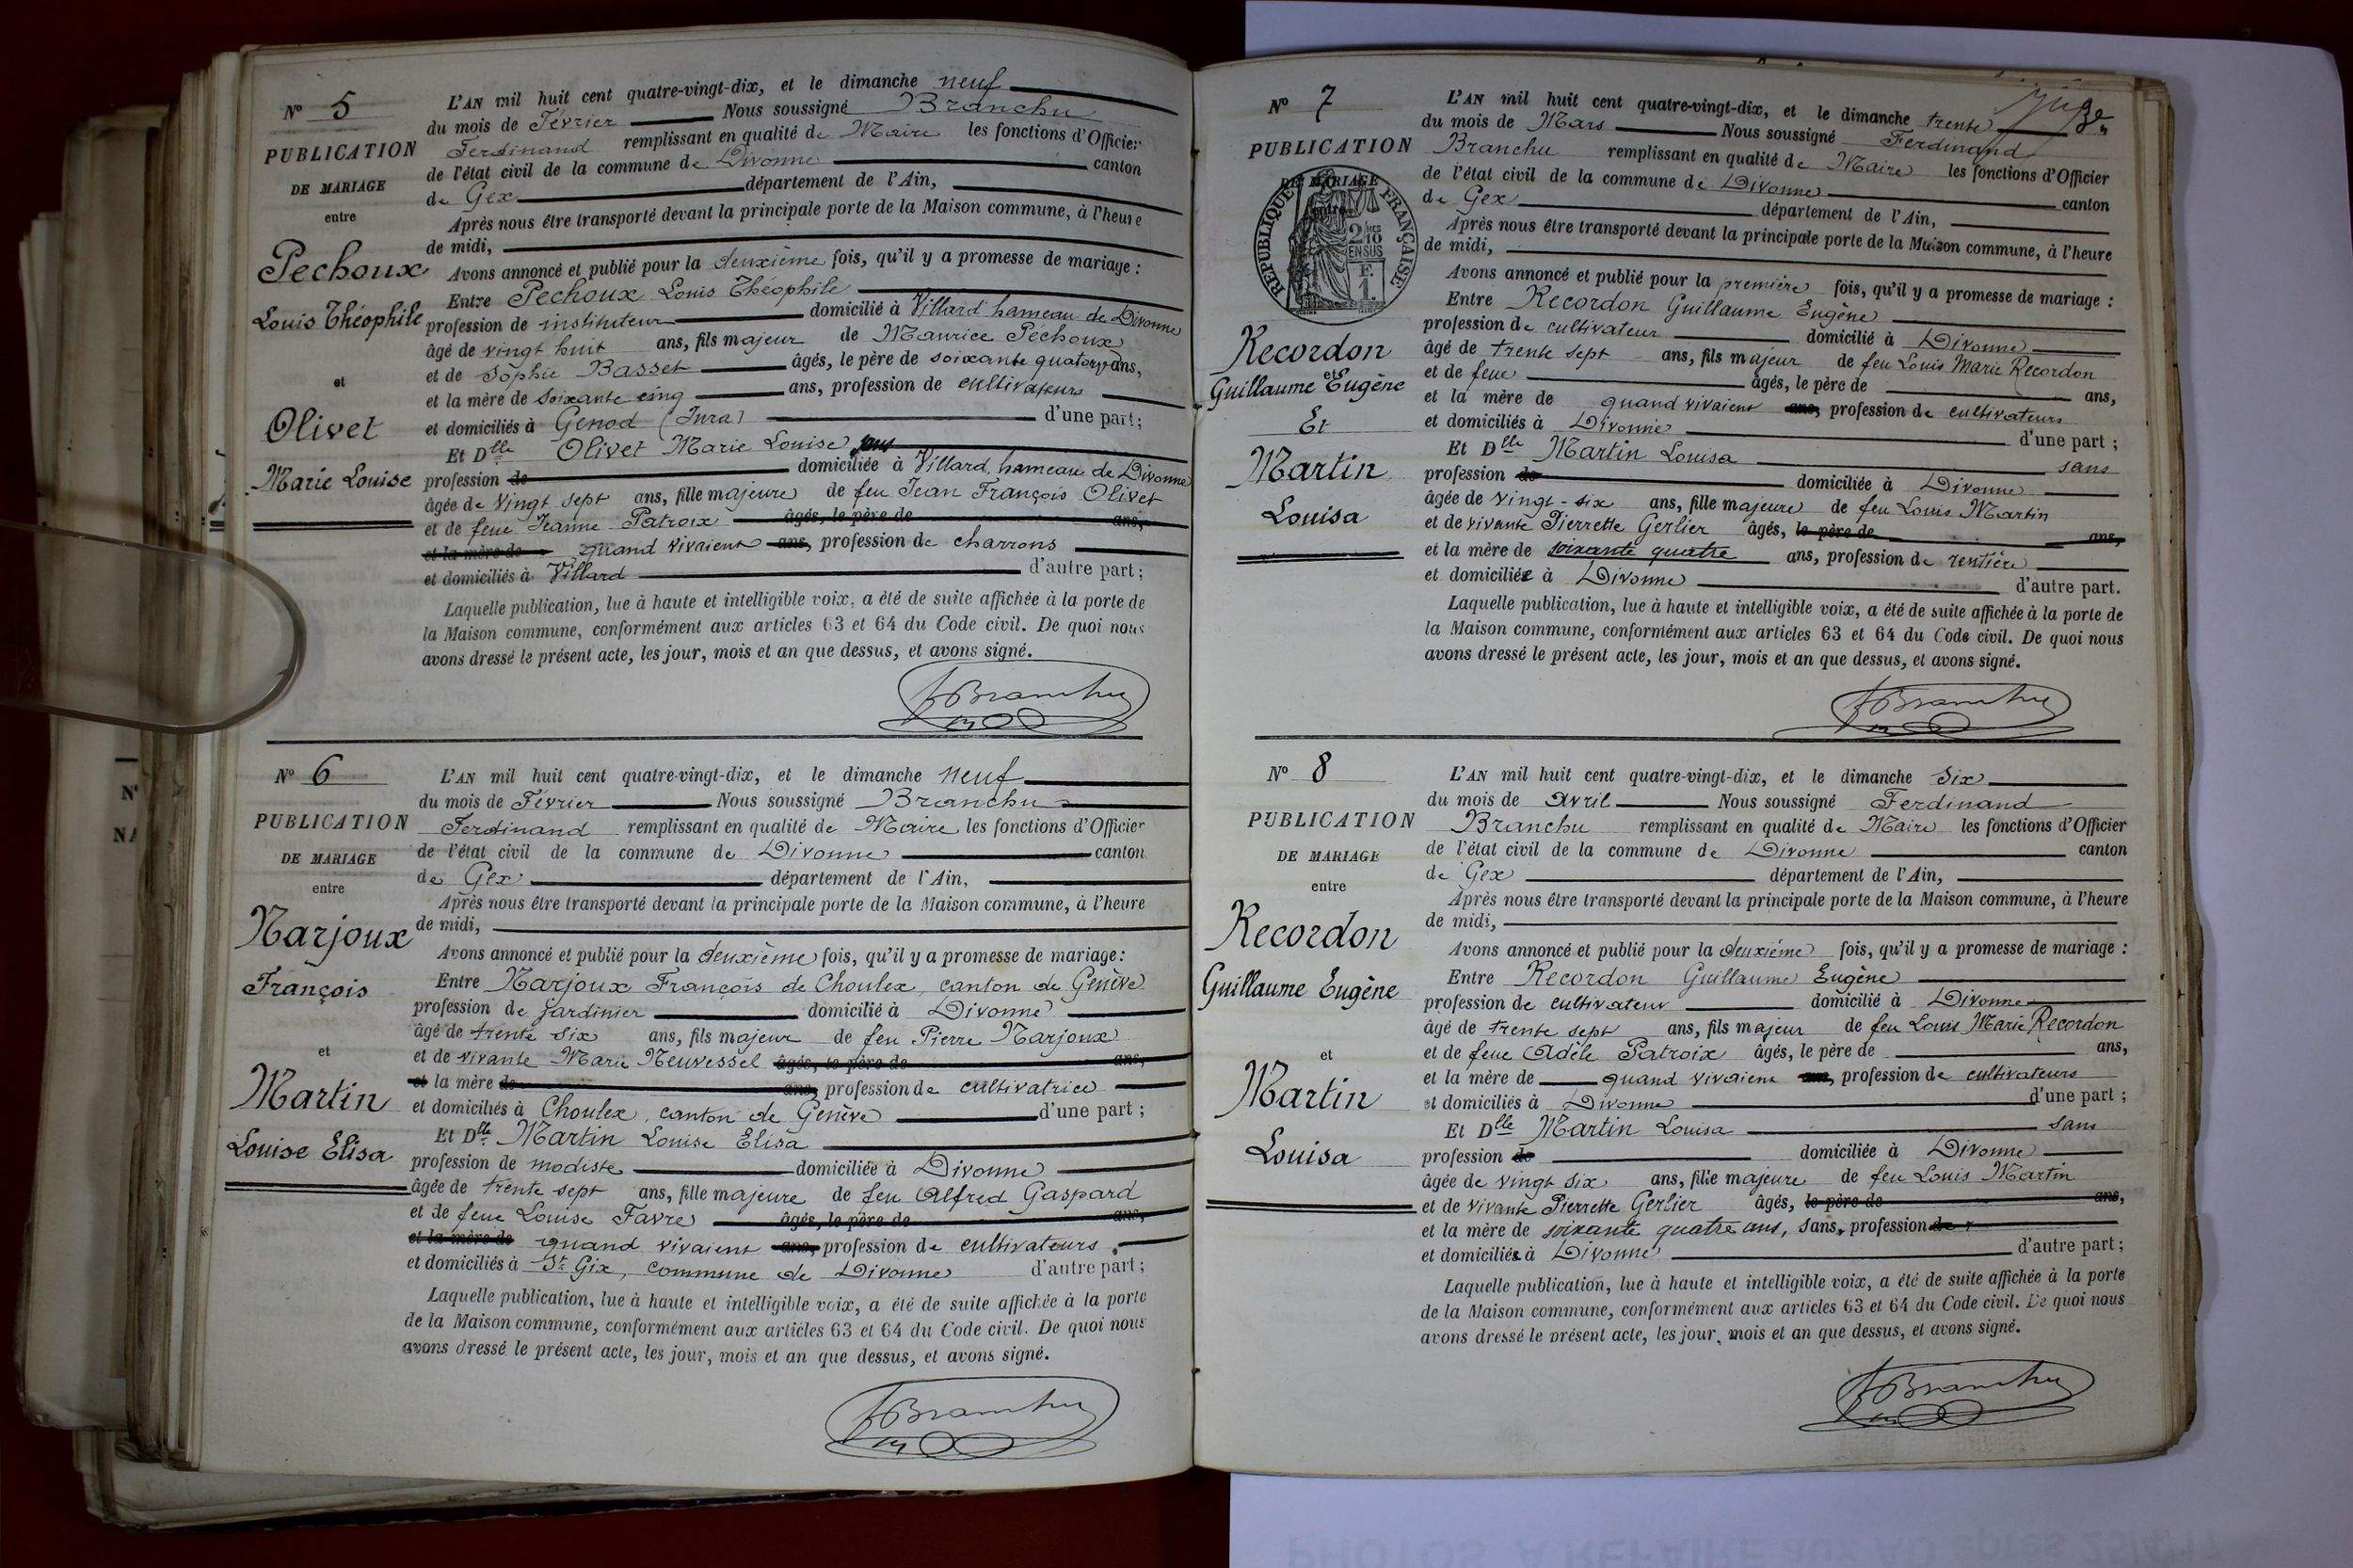 Nº 5
PUBLICATION
DE MARIAGE
entre
Pechoux
Louis Théophile
et
Olivet
Marie Louise
L'AN mil huit cent quatre-vingt-dix, et le dimanche neuf
du mois de Février Nous soussigné Branchu
Ferdinand remplissant en qualité de Maire les fonctions d'Officier
de l'état civil de la commune de Divonne canton
de Gex département de l'Ain,
Après nous être transporté devant la principale porte de la Maison commune, à l'heure
de midi,
Avons annoncé et publié pour la deuxième fois, qu'il y a promesse de mariage :
Entre Pechoux Louis Théophile
profession de instituteur domicilié à Villard hameau de Divonne
âgé de vingt huit ans, fils majeur de Maurice Péchoux
et de Sophie Basset âgés, le père de soixante quatorze ans,
et la mère de soixante cinq ans, profession de cultivateurs
et domiciliés à Genod (Jura) d'une part;
Et Dlle Olivet Marie Louise sans
profession de domiciliée à Villard, hameau de Divonne
âgée de vingt sept ans, fille majeure de feu Jean François Olivet
et de feue Jeanne Patroix âgés, le père de ans,
et la mère de quand vivaient ans, profession de charrons
et domiciliés à Villard d'autre part;
Laquelle publication, lue à haute et intelligible voix, a été de suite affichée à la porte de
la Maison commune, conformément aux articles 63 et 64 du Code civil. De quoi nous
avons dressé le présent acte, les jour, mois et an que dessus, et avons signé.
F Branchu
Nº 6
PUBLICATION
DE MARIAGE
entre
Narjoux
François
et
Martin
Louise Elisa
L'AN mil huit cent quatre-vingt-dix, et le dimanche neuf
du mois de Février Nous soussigné Branchu
Ferdinand remplissant en qualité de Maire les fonctions d'Officier
de l'état civil de la commune de Divonne canton
de Gex département de l'Ain,
Après nous être transporté devant la principale porte de la Maison commune, à l'heure
de midi,
Avons annoncé et publié pour la deuxième fois, qu'il y a promesse de mariage:
Entre Narjoux François de Choulex, canton de Genève
profession de jardinier domicilié à Divonne
âgé de trente six ans, fils majeur de feu Pierre Narjoux
et de vivante Marie Neuvessel âgés, le père de ans,
et la mère de ans, profession de cultivatrice
et domiciliés à Choulex, canton de Genève d'une part ;
Et Dlle Martin Louise Elisa
profession de modiste domiciliée à Divonne
âgée de trente sept ans, fille majeure de feu Alfred Gaspard
et de feue Louise Favre âgés, le père de ans,
et la mère de quand vivaient ans, profession de cultivateurs
et domiciliés à St Gix, commune de Divonne d'autre part;
Laquelle publication, lue à haute et intelligible voix, a été de suite affichée à la porte
de la Maison commune, conformément aux articles 63 et 64 du Code civil. De quoi nous
avons dressé le présent acte, les jour, mois et an que dessus, et avons signé.
F Branchu
Nº 7
PUBLICATION
DE MARIAGE
entre
REPUBLIQUE FRANÇAISE
2/10 EN SUS
F. 1.
Recordon
et
Guillaume Eugène
Et
Martin
Louisa
L'AN mil huit cent quatre-vingt-dix, et le dimanche trente
du mois de Mars Nous soussigné Ferdinand
Branchu remplissant en qualité de Maire les fonctions d'Officier
de l'état civil de la commune de Divonne canton
de Gex département de l'Ain,
Après nous être transporté devant la principale porte de la Maison commune, à l'heure
de midi,
Avons annoncé et publié pour la première fois, qu'il y a promesse de mariage :
Entre Recordon Guillaume Eugène
profession de cultivateur domicilié à Divonne
âgé de trente sept ans, fils majeur de feu Louis Marie Recordon
et de feue âgés, le père de ans,
et la mère de quand vivaient ans, profession de cultivateurs
et domiciliés à Divonne d'une part ;
Et Dlle Martin Louisa sans
profession de domiciliée à Divonne
âgée de vingt-six ans, fille majeure de feu Louis Martin
et de vivante Pierrette Gerlier âgés, le père de ans,
et la mère de soixante quatre ans, profession de rentière
et domiciliée à Divonne d'autre part.
Laquelle publication, lue à haute et intelligible voix, a été de suite affichée à la porte de
la Maison commune, conformément aux articles 63 et 64 du Code civil. De quoi nous
avons dressé le présent acte, les jour, mois et an que dessus, et avons signé.
F Branchu
Nº 8
PUBLICATION
DE MARIAGE
entre
Recordon
Guillaume Eugène
et
Martin
Louisa
L'AN mil huit cent quatre-vingt-dix, et le dimanche six
du mois de Avril Nous soussigné Ferdinand
Branchu remplissant en qualité de Maire les fonctions d'Officier
de l'état civil de la commune de Divonne canton
de Gex département de l'Ain,
Après nous être transporté devant la principale porte de la Maison commune, à l'heure
de midi,
Avons annoncé et publié pour la deuxième fois, qu'il y a promesse de mariage :
Entre Recordon Guillaume Eugène
profession de cultivateur domicilié à Divonne
âgé de trente sept ans, fils majeur de feu Louis Marie Recordon
et de feue Adèle Patroix âgés, le père de ans,
et la mère de quand vivaient ans, profession de cultivateurs
et domiciliés à Divonne d'une part ;
Et Dlle Martin Louisa sans
profession de domiciliée à Divonne
âgée de vingt six ans, fille majeure de feu Louis Martin
et de vivante Pierrette Gerlier âgés, le père de ans,
et la mère de soixante quatre ans, sans, profession de
et domiciliés à Divonne d'autre part;
Laquelle publication, lue à haute et intelligible voix, a été de suite affichée à la porte
de la Maison commune, conformément aux articles 63 et 64 du Code civil. De quoi nous
avons dressé le présent acte, les jour, mois et an que dessus, et avons signé.
F Branchu